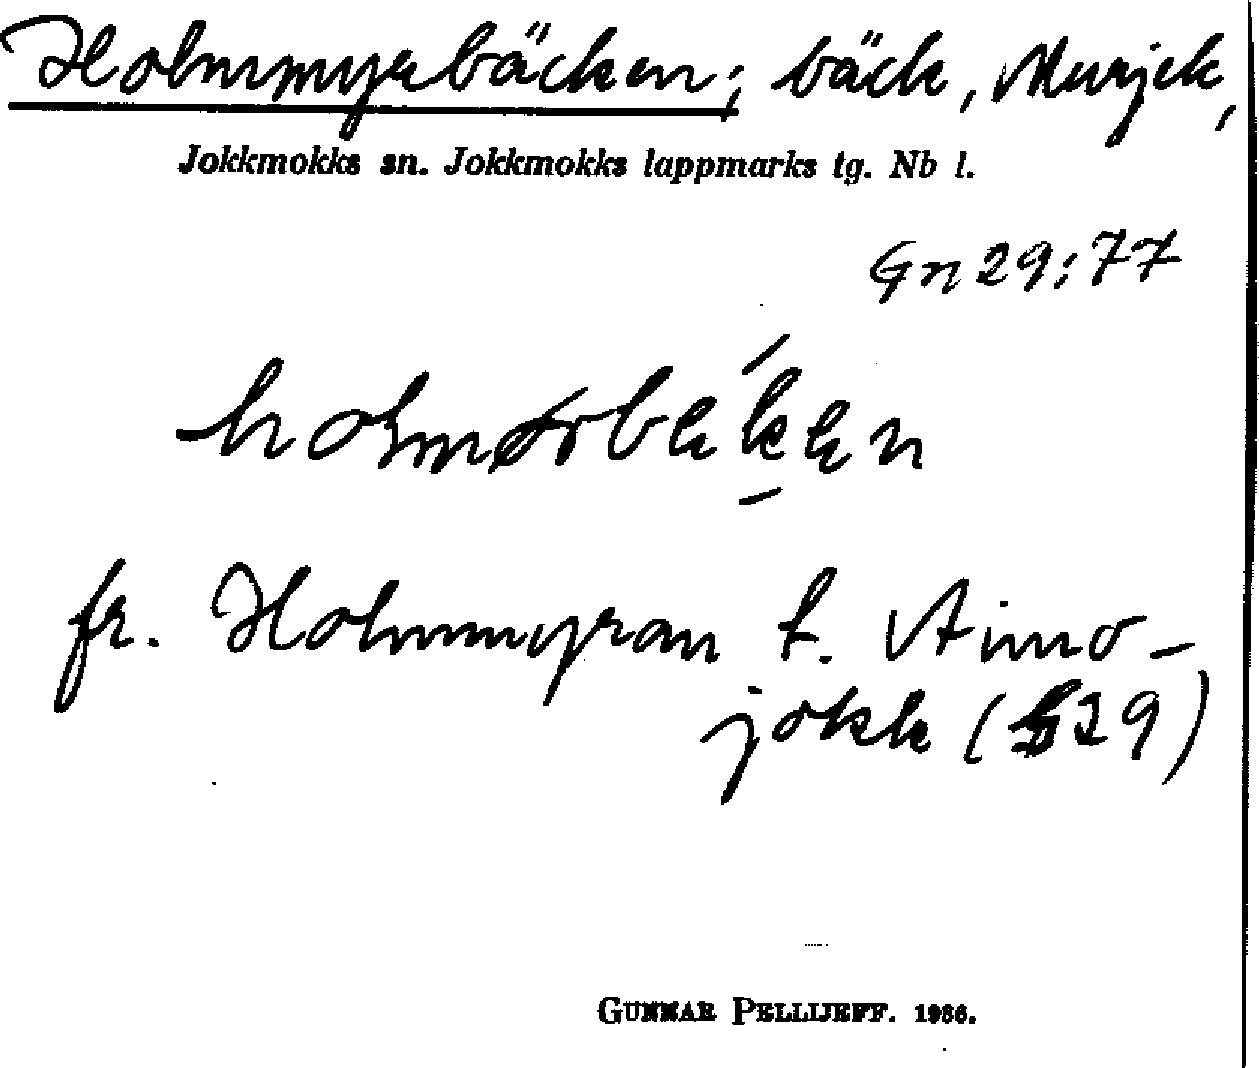 Holmmyrbäcken; bäck, Murjek,
Jokkmokks sn. Jokkmokks lappmarks tg. Nb l.
Gn 29:77
fr. Holmmyran t. Aimo-
jokk (29)
GUNNAR PELLIJEFF. 1966.